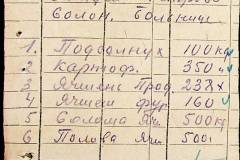 Солом. Больниц
1. Подсолнух 100 кг
2 Картоф. 350 "
3 Ячмень Прод. 238
4 Ячмен фур. 160
5 Солома Яч. 500 кг
6 Полова Яч 500